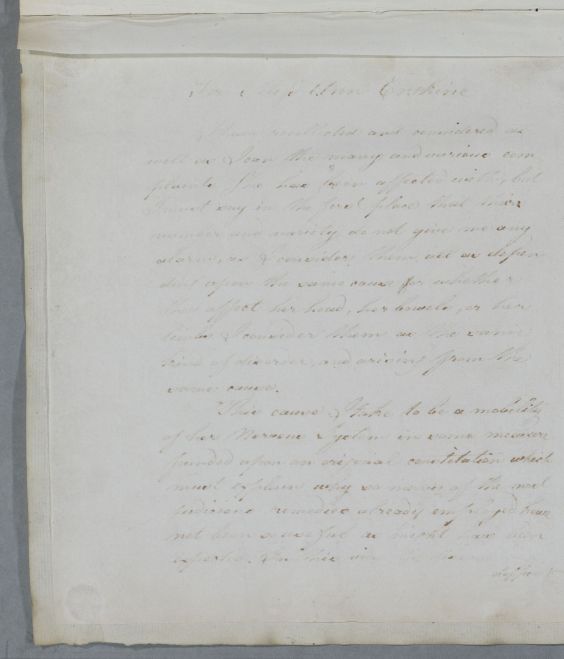 For Lady Ann Erskine
I have recollected and considered as
well as I can the many and various com
plaints She has been affected with, but
I must say in the first place that their
number and variety do not give me any
alarm, as I consider them all as depen
ding upon the same cause for whether
they affect her head, her bowels, or her
limbs I consider them as the same
kind of disorder, and arising from the
same cause.
This cause I take to be a mobility
of her Nervous System in some measure
founded upon an original constitution which
must explain why so many of the most
judicious remedies already employed have
not been so useful as might have been
expected. In this view